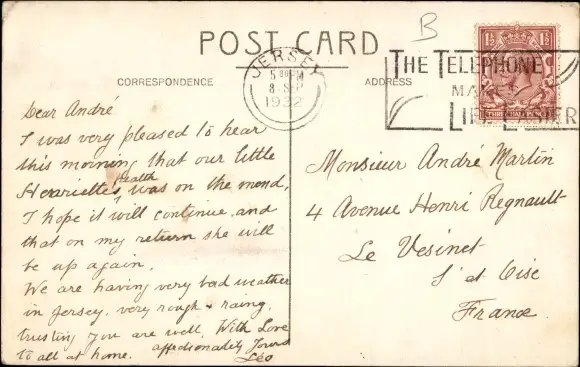 B
POST CARD
CORRESPONDENCE
ADDRESS
JERSEY
5 PM
8 SEP
1932
THE TELEPHONE
MAKES
LIFE EASIER
1½ 1½
Dear André
I was very pleased to hear
this morning that our little
Henriettes health was on the mend,
I hope it will continue, and
that on my return she will
be up again.
We are having very bad weather
in Jersey, very rough & raing,
trusting you are well, With Love
to all at home. affectionately Yours
Léo
Monsieur André Martin
4 Avenue Henri Regnault
Le Vesinet
S' et Oise
France